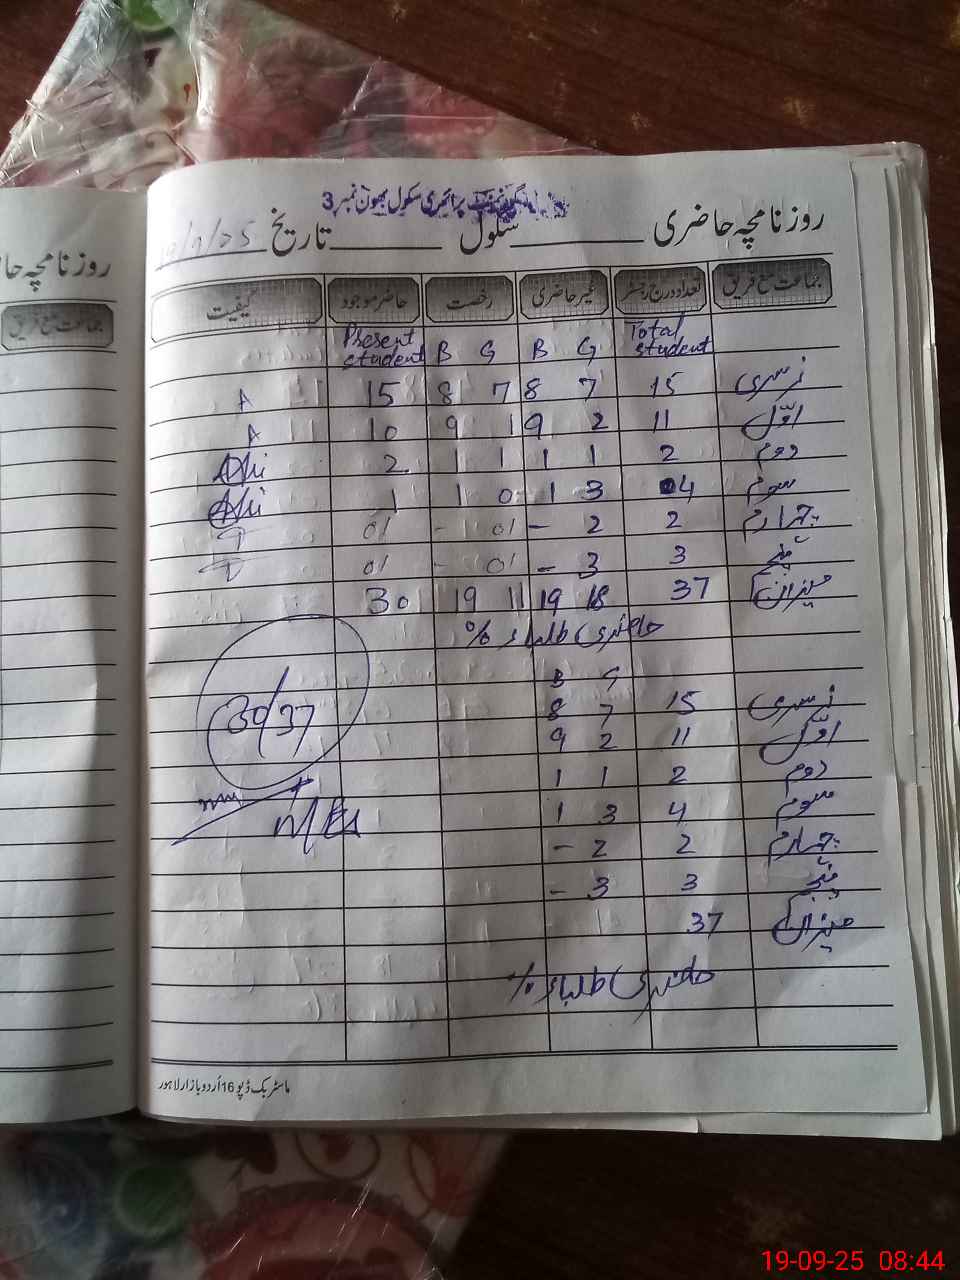 گورنمنٹ پرائمری سکول بھون نمبر 3
روزنامچہ حاضری ــــــ سکول ــــــ تاریخ 19/9/25
جماعت مع فریق تعداد درج رجسٹر غیر حاضری رخصت حاضر موجود کیفیت
Present student B G B G Total student
نرسری 15 7 8 7 8 15 A
اوّل 11 2 9 1 9 10 A
دوم 2 1 1 1 1 2
سوم 04 3 1 0 1 1
چہارم 2 2 - 01 - 01
پنجم 3 3 - 01 - 01
میزان 37 18 19 11 19 30
حاضری طلباء %
B G
نرسری 15 7 8
30/37
اوّل 11 2 9
دوم 2 1 1
سوم 4 3 1
چہارم 2 2 -
پنجم 3 3 -
میزان 37
حاضری طلباء %
ماسٹر بک ڈپو 16 اُردو بازار لاہور
روزنامچہ حا
جماعت مع فریق
19-09-25 08:44